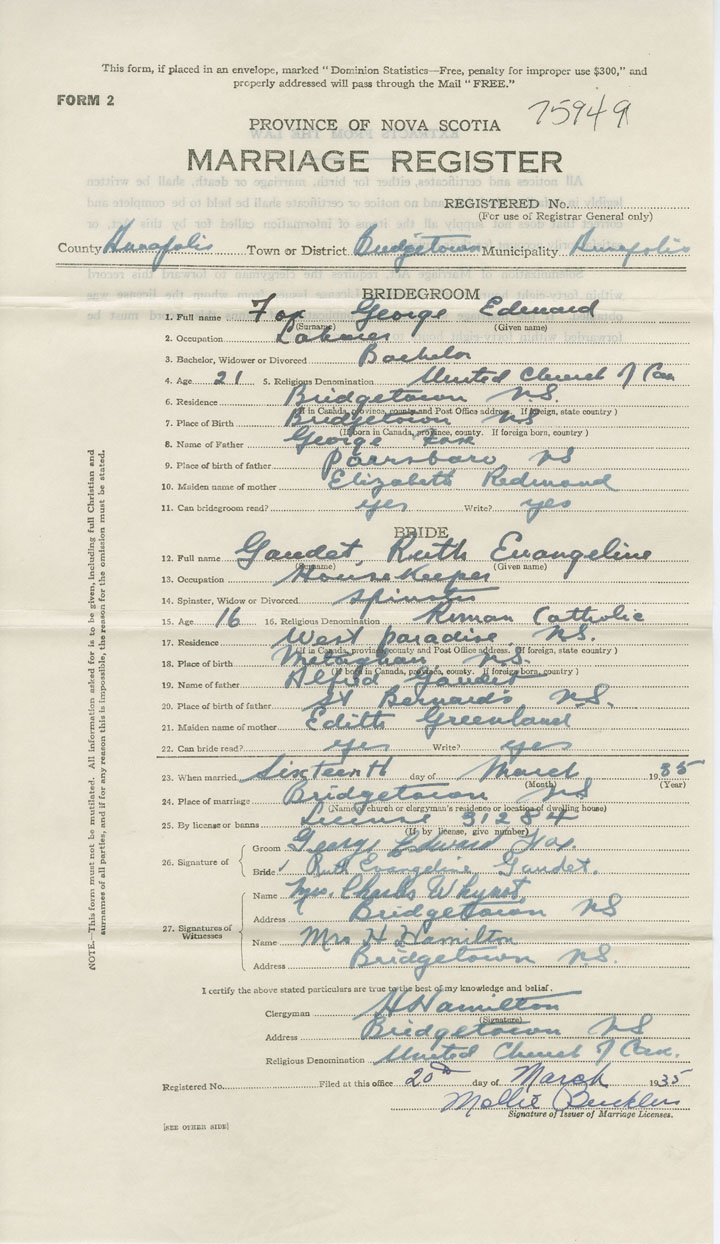 This form, if placed in an envelope, marked "Dominion Statistics—Free, penalty for improper use $300," and
properly addressed will pass through the Mail "FREE."
FORM 2
75949
PROVINCE OF NOVA SCOTIA
MARRIAGE REGISTER
REGISTERED No.
(For use of Registrar General only)
County Annapolis Town or District Bridgetown Municipality Annapolis
BRIDEGROOM
1. Full name Fox George Edward
(Surname) (Given name)
2. Occupation Laborer
3. Bachelor, Widower or Divorced Bachelor
4. Age 21 5. Religious Denomination United Church of Can
6. Residence Bridgetown N.S.
(If in Canada, province, county and Post Office address. If foreign, state country)
7. Place of Birth Bridgetown NS
(If born in Canada, province, county. If foreign born, country)
8. Name of Father George Fox
9. Place of birth of father Parrsboro NS
10. Maiden name of mother Elizabeth Redmond
11. Can bridegroom read? yes Write? yes
BRIDE
12. Full name Gaudet, Ruth Evangeline
(Surname) (Given name)
13. Occupation Housekeeper
14. Spinster, Widow or Divorced Spinster
15. Age 16 16. Religious Denomination Roman Catholic
17. Residence West Paradise, N.S.
(If in Canada, province, county and Post Office address. If foreign, state country)
18. Place of birth Metaghan, N.S.
(If born in Canada, province, county. If foreign born, country)
19. Name of father Alfred Gaudet
20. Place of birth of father St Bernard's N.S.
21. Maiden name of mother Edith Greenland
22. Can bride read? yes Write? yes
23. When married Sixteenth day of March 1935
(Month) (Year)
24. Place of marriage Bridgetown NS
(Name of church or clergyman's residence or location of dwelling house)
25. By license or banns License 31284
(If by license, give number)
26. Signature of Groom George Edward Fox.
Bride Ruth Evangeline Gaudet.
27. Signatures of Witnesses
Name Mrs. Charles Whynot
Address Bridgetown NS
Name Mrs H Hamilton
Address Bridgetown N.S.
I certify the above stated particulars are true to the best of my knowledge and belief.
Clergyman H Hamilton
(Signature)
Address Bridgetown NS
Religious Denomination United Church of Can.
Registered No. Filed at this office 20th day of March 1935
Mollie
Signature of Issuer of Marriage Licenses.
[SEE OTHER SIDE]
NOTE.—This form must not be mutilated. All information asked for is to be given, including full Christian and
surnames of all parties, and if for any reason this is impossible, the reason for the omission must be stated.